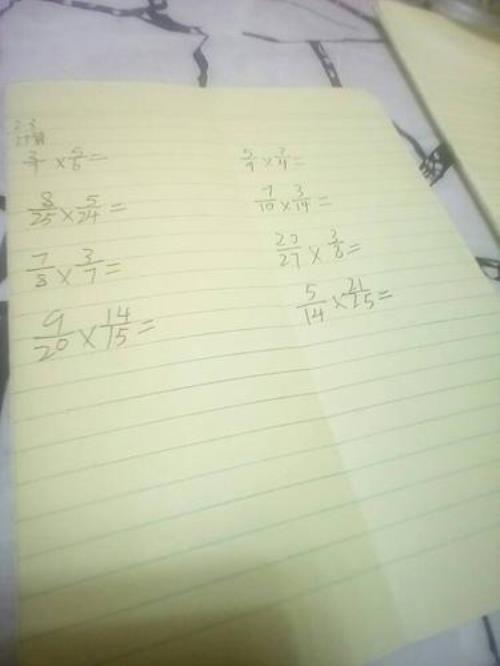 计算
5/9 × 3/4 =
8/25 × 5/24 = 7/10 × 3/14 =
7/8 × 3/7 = 20/27 × 3/8 =
9/20 × 14/15 = 5/14 × 21/25 =